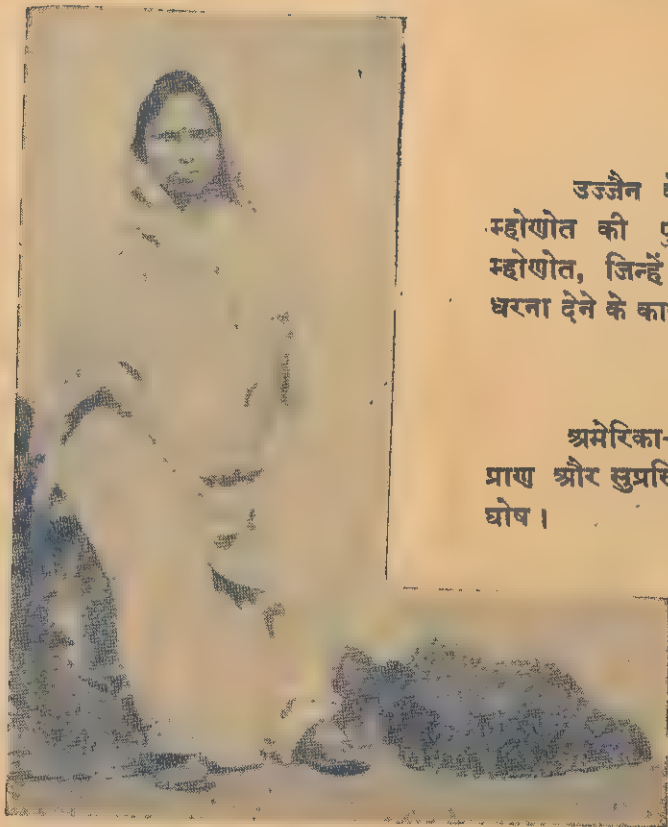 उज्जैन
म्होणोत की
म्होणोत, जिन्हें
धरना देने के
अमेरिका-
प्राण और
घोष ।